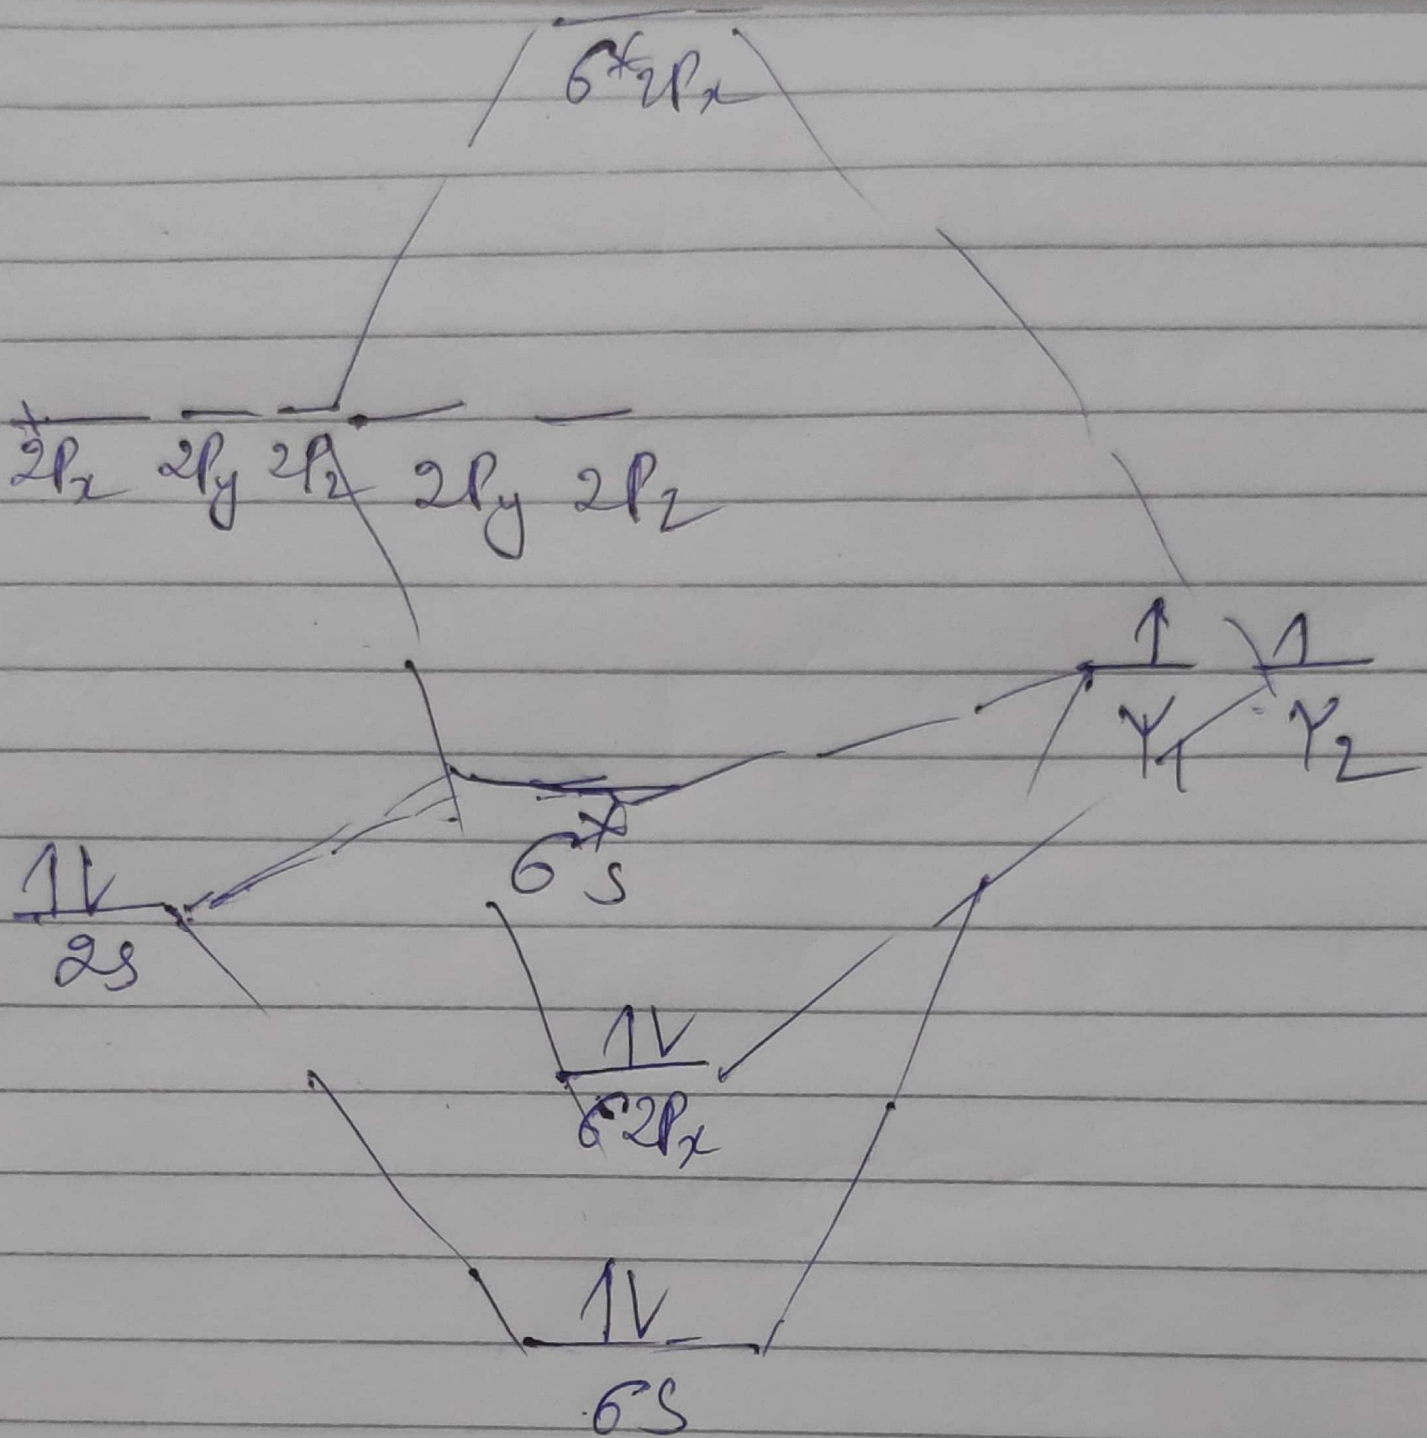 σ*2Px
2Px 2Py 2Pz 2Py 2Pz
1 1
Ψ1 Ψ2
σ*s
1L
2s
1V
σ2Px
1V
σs